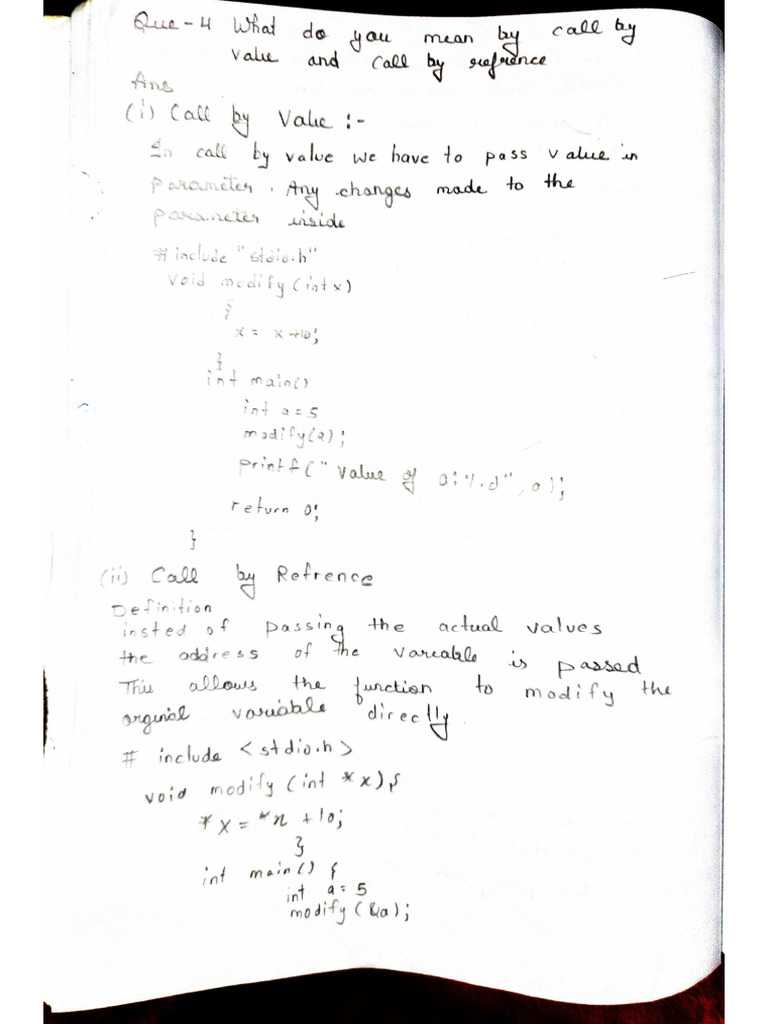 Que-4 What do you mean by call by
value and call by refrence
Ans
(i) Call by Value :-
In call by value we have to pass value in
parameter. Any changes made to the
parameter inside
# include "stdio.h"
void modify (int x)
{
x = x+10;
}
int main()
int a = 5
modify(a);
printf(" value of a:%d", a);
return 0;
}
(ii) Call by Refrence
Definition
insted of passing the actual values
the address of the variable is passed
This allows the function to modify the
orginal variable directly.
# include <stdio.h>
void modify (int *x) {
*x = *x +10;
}
int main() {
int a = 5
modify (&a);